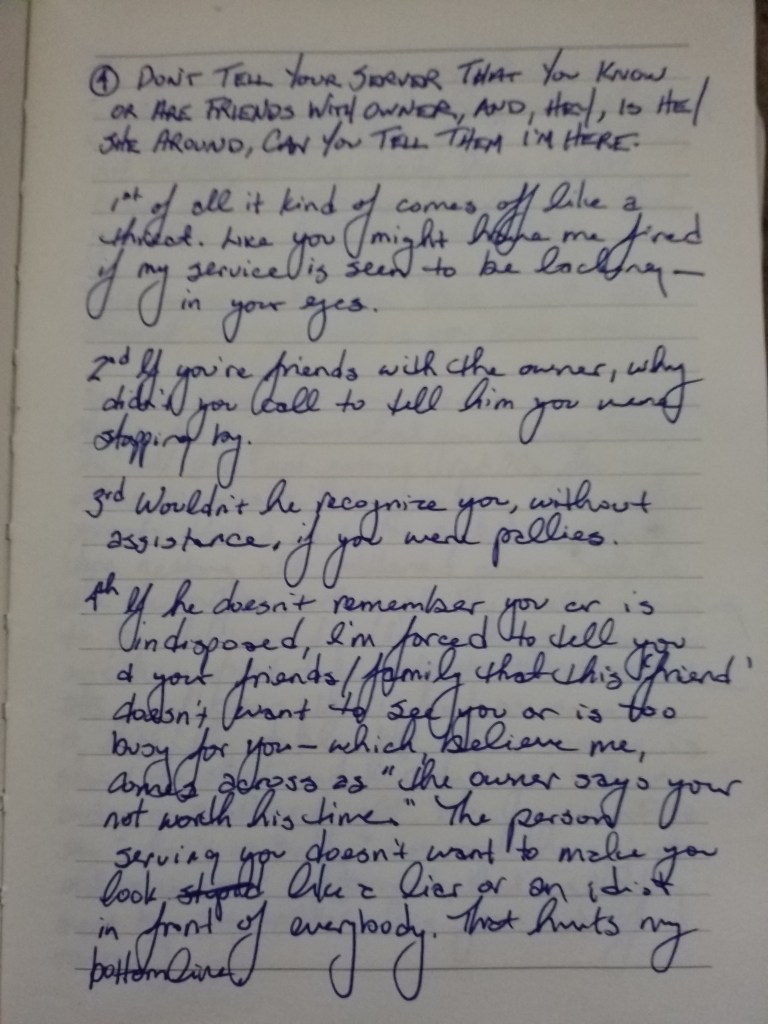 ④ DON'T TELL YOUR SERVER THAT YOU KNOW
OR ARE FRIENDS WITH OWNER, AND, HEY, IS HE/
SHE AROUND, CAN YOU TELL THEM I'M HERE.
1st of all it kind of comes off like a
threat. Like you might have me fired
if my service is seen to be lacking —
in your eyes.
2nd If you're friends with the owner, why
didn't you call to tell him you were
stopping by.
3rd Wouldn't he recognize you, without
assistance, if you were pallies.
4th If he doesn't remember you or is
indisposed, I'm forced to tell you
& your friends/family that this 'friend'
doesn't want to see you or is too
busy for you — which, believe me,
comes across as "the owner says your
not worth his time." The person
serving you doesn't want to make you
look stupid like a liar or an idiot
in front of everybody. That hurts my
bottom line.